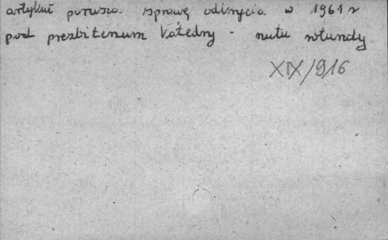 artykuł porusza sprawę odkrycia w 1961 r
pod prezbiterium Katedry - rotundy
XIX/916